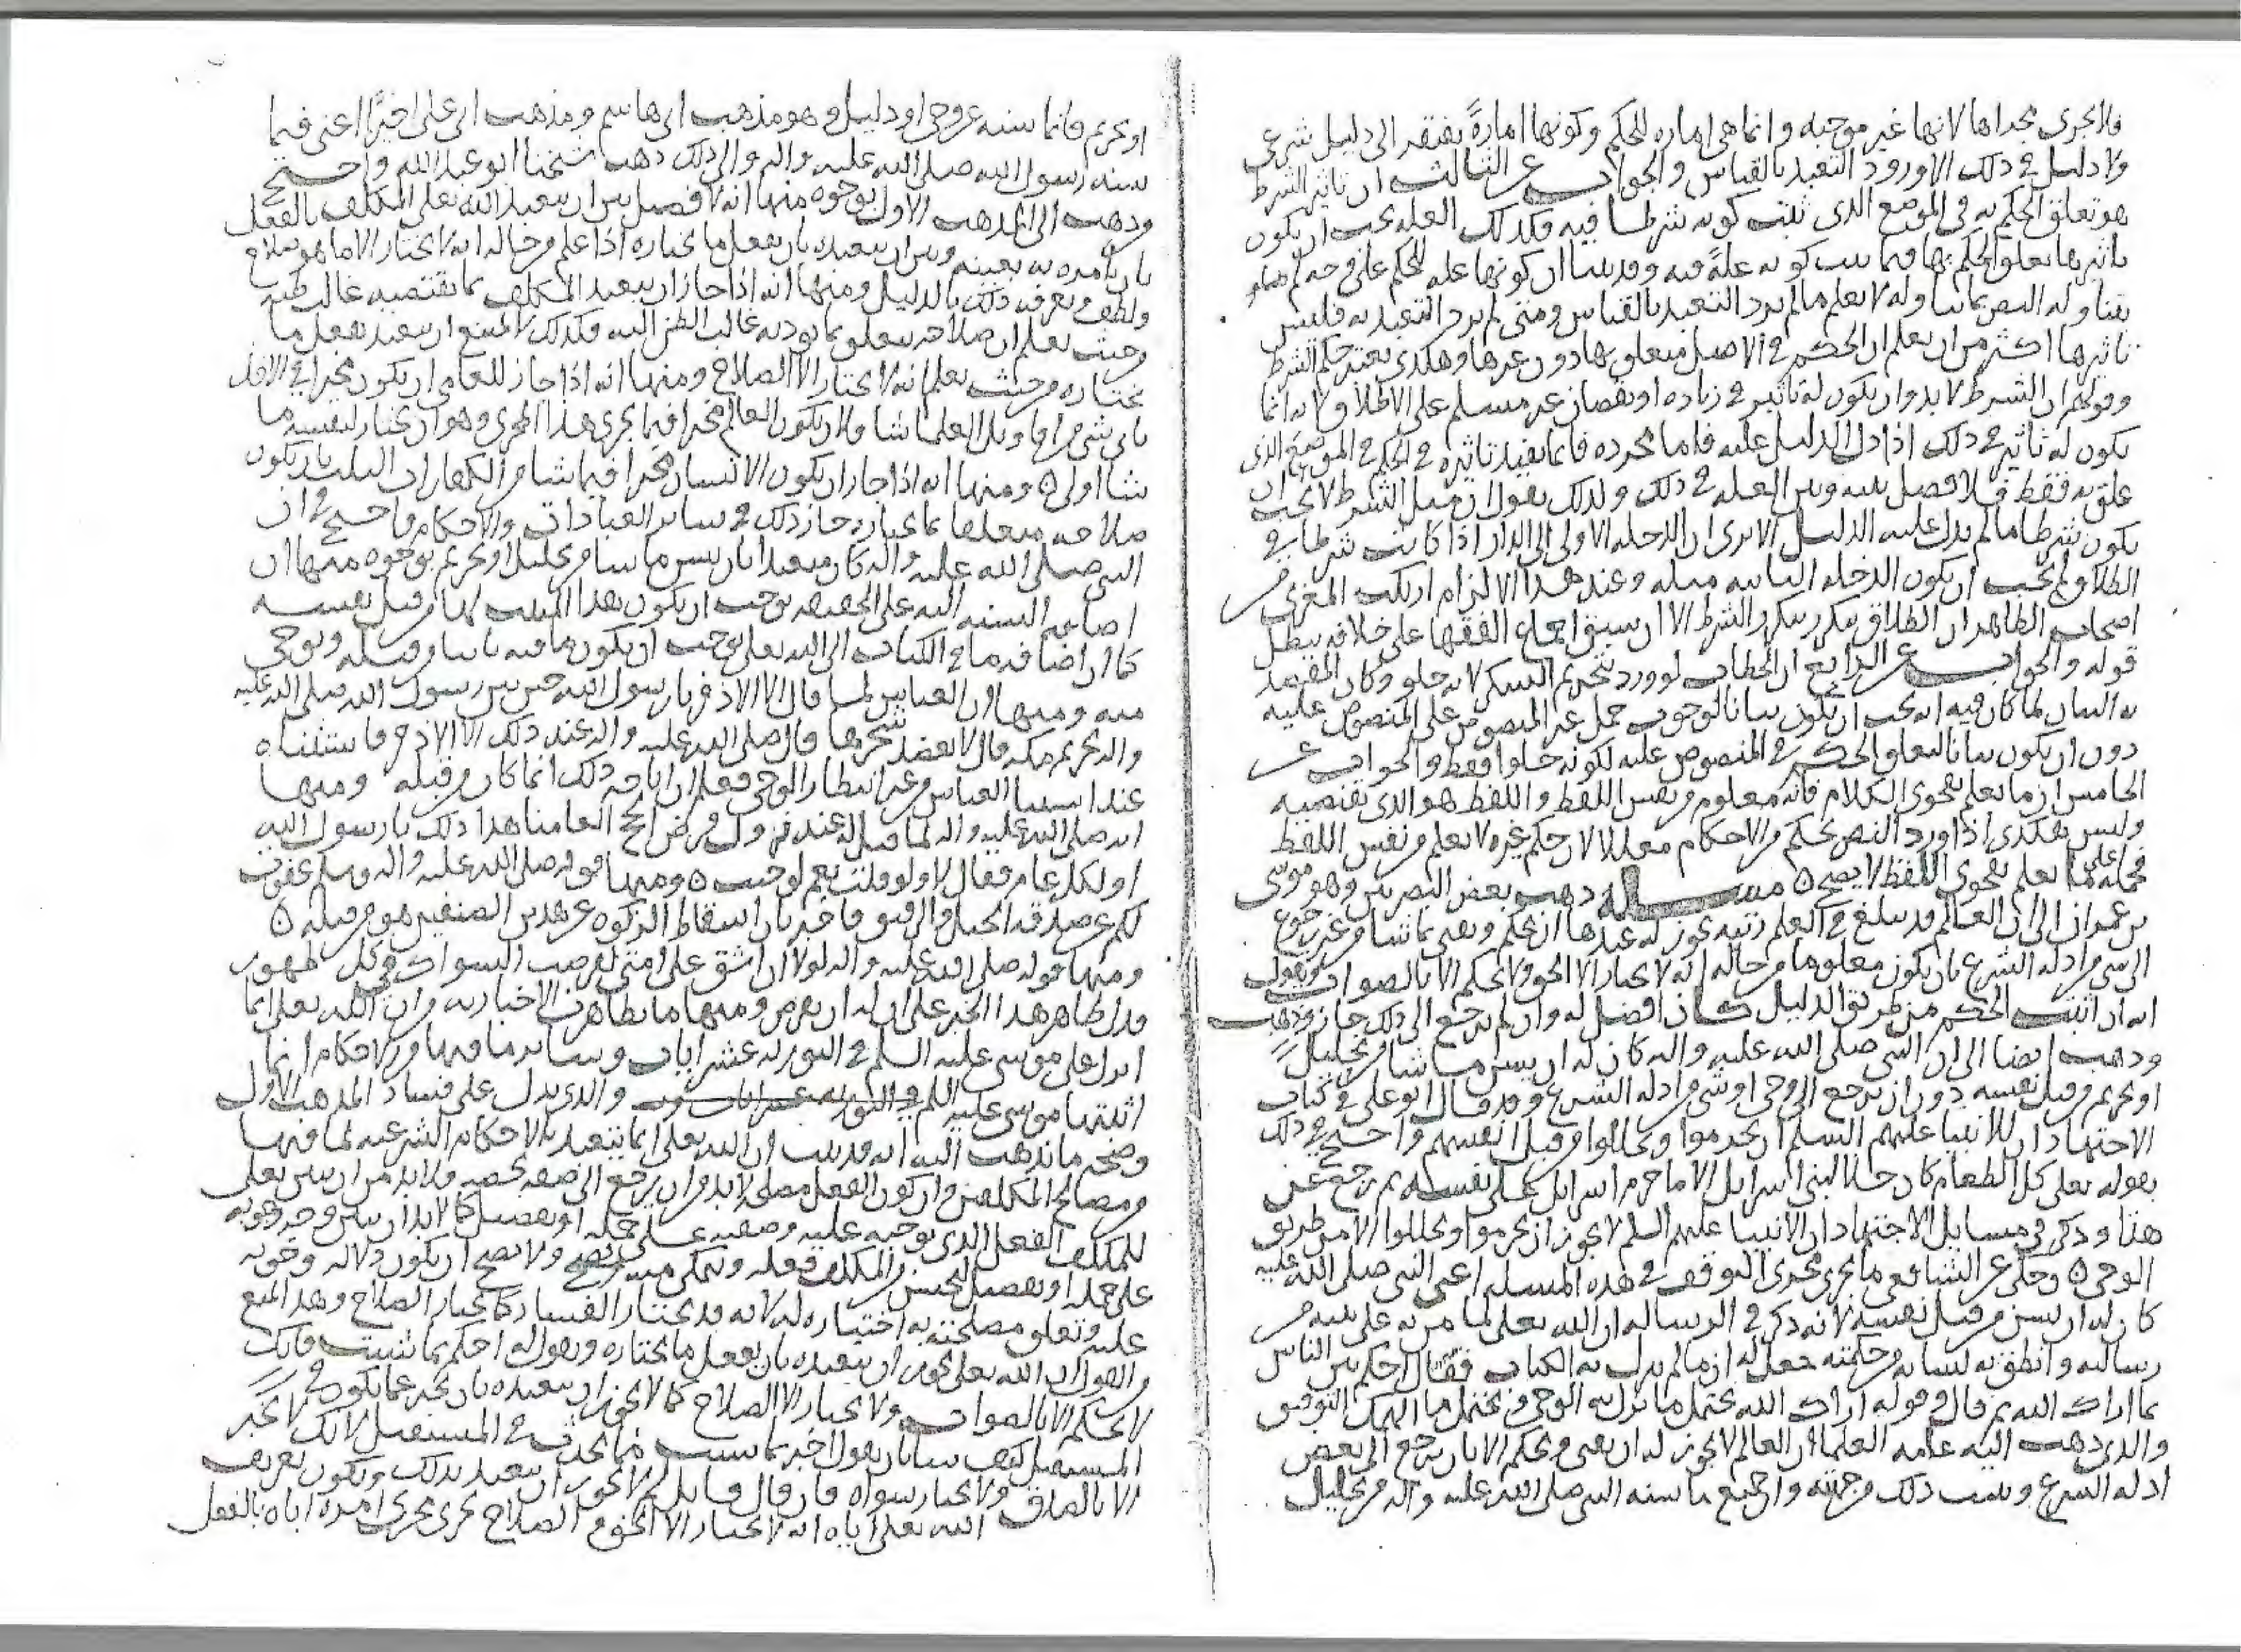 فلا يجري مجراها لانها غير موجبه وانما هي اماره للحكم وكونها امارةً يفتقر الى دليل شرعي
ولا دليل في ذلك الا ورود التعبد بالقياس والجواب عن الثالث ان تاثير الشرط
هو تعلق الحكم به في الموضع الذي ثبت كونه شرطا فيه فكذلك العله يجب ان يكون
تاثيرها تعلق الحكم بها فيما ثبت كونه علةً فيه وقد بينا ان كونها عله للحكم على وجه
يتناوله النص بما يتناوله لا يعلم مالم يرد التعبد بالقياس ومتى لم يرد التعبد به فليس
تاثيرها اكثر من ان يعلم ان الحكم في الاصل متعلق بها دون غيرها وهكذى يعتبر حكم الشرط
وقولهم ان الشرط لا بد وان يكون له تاثير في زياده او نقصان غير مسلم على الاطلاق لانه انما
يكون له تاثير في ذلك اذا دل الدليل عليه فاما مجرده فانما يفيد تاثيره في الحكم في الموضع الذي
علق به فقط فلا فصل بينه وبين العله في ذلك ولذلك نقول ان مثل الشرط لا يجب ان
يكون شرطا مالم يدل عليه الدليل الا ترى ان الدخله الاولى الى الدار اذا كانت شرطا في
الطلاق لم يجب ان يكون الدخله الثانيه مثله وعند هذا الالزام ارتكب المغربي من
اصحاب الظاهر ان الطلاق يتكرر بتكرر الشرط الا ان سبق اجماع الفقها على خلافه يبطل
قوله والجواب عن الرابع ان الخطاب لو ورد بتحريم السكر لانه حلو وكان المقصد
به البيان لما كان فيه انه يجب ان يكون بيانا لوجوب حمل غير المنصوص على المنصوص عليه
دون ان يكون بيانا لتعلق الحكم في المنصوص عليه لكونه حلوا فقط والجواب عن
الخامس ان ما يعلم بفحوى الكلام فانه معلوم من نفس اللفظ واللفظ هو الذي يقتضيه
وليس هكذى اذا ورد النص بحكم من الاحكام معللا لان حكم غيره لا يعلم من نفس اللفظ
فحمله على ما يعلم بفحوى اللفظ لا يصح ه مسله ذهب بعض البصريين وهو موسى
بن عمران الى ان العالم قد يبلغ في العلم رتبه يجوز له عندها ان يحكم ويفتي بما شا من غير رجوع
الى شي من ادله الشرع بان يكون معلوما من حاله انه لا يختار الا الحق ولا يحكم الا بالصواب ويقول
انه ان اثبت الحكم من طريق الدليل كان افضل له وان لم يرجع الى ذلك جاز
وذهب ايضا الى ان النبي صلى الله عليه واله كان له ان يسن ما شا من تحليل
او تحريم من قبل نفسه دون ان يرجع الى وحي او شي من ادله الشرع وقد قال ابو علي في كتاب
الاجتهاد ان للانبيا عليهم السلم ان يحرموا ويحللوا من قبل انفسهم واحتج في ذلك
بقوله تعلى كل الطعام كان حلا لبني اسرايل الا ما حرم اسرايل على نفسه ثم رجع عن
هذا وذكر في مسايل الاجتهاد ان الانبيا عليهم السلم لا يجوز ان يحرموا ويحللوا الا من طريق
الوحي ه وحكى عن الشافعي ما يجري مجرى التوقف في هذه المسله اعني النبي صلى الله عليه
كان له ان يسن من قبل نفسه لانه ذكر في الرساله ان الله تعلى لما من به على نبيه من
رسالته وانطق به لسانه من حكمته جعل له ان مالم ينزل به الكتاب فقال احكم بين الناس
بما اراك الله ثم قال وقوله اراك الله يحتمل ما نزل به الوحي ويحتمل ما الهمك التوفيق
والذي ذهب اليه عامه العلما ان العالم لا يجوز له ان يفتي ويحكم الا بان يرجع الى بعض
ادله الشرع ويثبت ذلك من جهته وان جميع ما سنه النبي صلى الله عليه واله من تحليل
او تحريم فانما سنه عن وحي او دليل وهو مذهب ابي هاشم ومذهب ابي علي اخيرًا اعني فيما
سنه رسول الله صلى الله عليه واله والى ذلك ذهب شيخنا ابو عبد الله واحتج
وذهب الى المذهب الاول بوجوه منها انه لا فصل بين ان يتعبد الله تعلى المكلف بالفعل
بان يامره به بعينه وبين ان يتعبده بان يفعل ما يختاره اذا علم من حاله انه لا يختار الا ما هو صلاح
ولطف ويعرفه ذلك بالدليل ومنها انه اذا جاز ان يتعبد المكلف بما يقتضيه غالب ظنه
وحيث يعلم ان صلاحه يتعلق بما يوديه غالب الظن اليه فكذلك لا يمتنع ان يتعبد بفعل ما
يختاره من حيث يعلم انه لا يختار الا الصلاح ومنها انه اذا جاز للعامي ان يكون مخيرا في الاخذ
باي شي من اقاويل العلما شا فلان يكون العالم مخيرا فيما يجري هذا المجرى وهو ان يختار لنفسه ما
شا اولى ه ومنها انه اذا جاز ان يكون الانسان مخيرا فيما شا من الكفارات الثلث بان يكون
صلاحه متعلقا بما يختاره جاز ذلك في ساير العبادات والاحكام واحتج في ان
النبي صلى الله عليه واله كان متعبدا بان يسن ما شا من تحليل او تحريم بوجوه منها ان
اضافه السنه اليه على الحقيقه توجب ان يكون هذا المثبت لها من قبل نفسه
كما ان اضافه ما في الكتاب الى الله تعلى توجب ان يكون ما فيه ثابتا من قبله وبوحي
منه ومنها ان العباس لما قال الا الاذخر يا رسول الله حين بين رسول الله صلى الله عليه
واله تحريم مكه وقال لا يعضد شجرها قال صلى الله عليه واله عند ذلك الا الاذخر فاستثناه
عند استثنا العباس من غير انتظار الوحي فعلم ان اباحه ذلك انما كان من قبله ومنها
انه صلى الله عليه واله لما قيل له عند نزول فرض الحج العامنا هذا ذلك يا رسول الله
او لكل عام فقال لا ولو قلت نعم لوجبت ه ومنها قوله صلى الله عليه واله وسلم عفوت
لكم عن صدقه الخيل والرقيق فاخبر بان اسقاط الزكوه عن هذين الصنفين هو من قبله ه
ومنها قوله صلى الله عليه واله لولا ان اشق على امتي لفرضت السواك في كل طهور
فدل ظاهر هذا الخبر على ان له ان يفرض ومنها ما تظاهرت الاخبار به من ان الله تعلى انما
انزل على موسى عليه السلم في التوريه عشر ايات وساير ما فيها من الاحكام انما
اثبتها موسى عليه السلم والذي يدل على فساد المذهب الاول
وصحه ما نذهب اليه انه قد ثبت ان الله تعلى انما يتعبد بالاحكام الشرعيه لما فيها
من مصالح المكلفين وان كون الفعل مصلحه لا بد من ان يرجع الى صفه تخصه فلا بد من ان يبين تعلى
للمكلف الفعل الذي يوجبه عليه وصفته على جمله او تفصيل كما لا بد ان يبين وجه وجوبه
على جمله او تفصيل ليحسن من المكلف فعله ويتمكن منه ولا يصح ان يكون دلاله وجوبه
عليه وتعلق مصلحته به اختياره له لانه قد يختار الفساد كما يختار الصلاح وهذا يمنع
من القول ان الله تعلى يجوز ان يتعبده بان يفعل ما يختاره ويقول له احكم بما شيت فانك
لا تحكم الا بالصواب ولا تختار الا الصلاح كما لا يجوز ان يتعبده بان يخبر عما يكون في
المستقبل كيف شا بان يقول اخبر بما شيت فيما يحدث في المستقبل لانك لا تخبر
الا بالصدق ولا تختار سواه فان قال قايل لم لا يجوز ان يتعبد بذلك ويكون تعريف
الله تعلى اياه انه لا يختار الا الحق والصلاح يجري مجرى امره اياه بالفعل